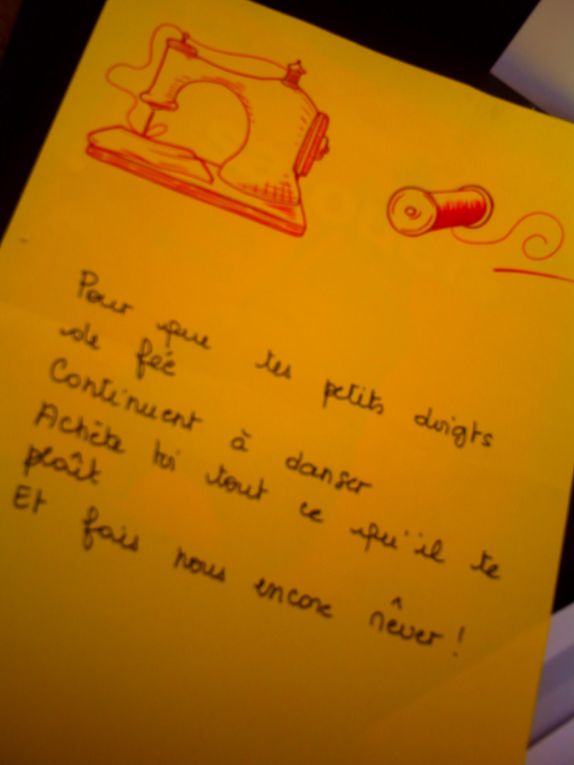 Pour que tes petits doigts
de fée
Continuent à danser
Achète toi tout ce qu'il te
plaît
Et fais nous encore rêver !